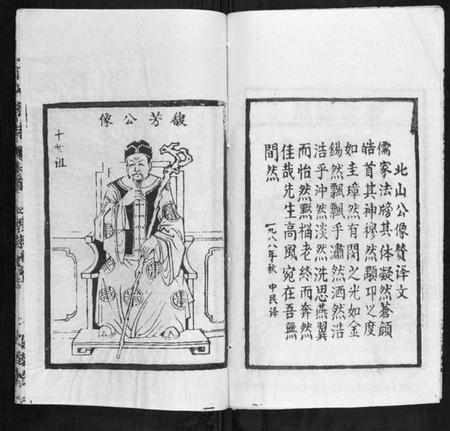 北山公像赞译文
儒家法牓其体凝然苍颜
皓首其神穆然颙卭之度
如圭璋然有闵之光如金
锡然飘飘乎潇然洒然浩
浩乎冲然淡然洗恩燕翼
而怡然黙檣老终而奔然
佳哉先生高风宛在吾無
間然
一九八八年秋 中民译
馥芳公像
十世祖